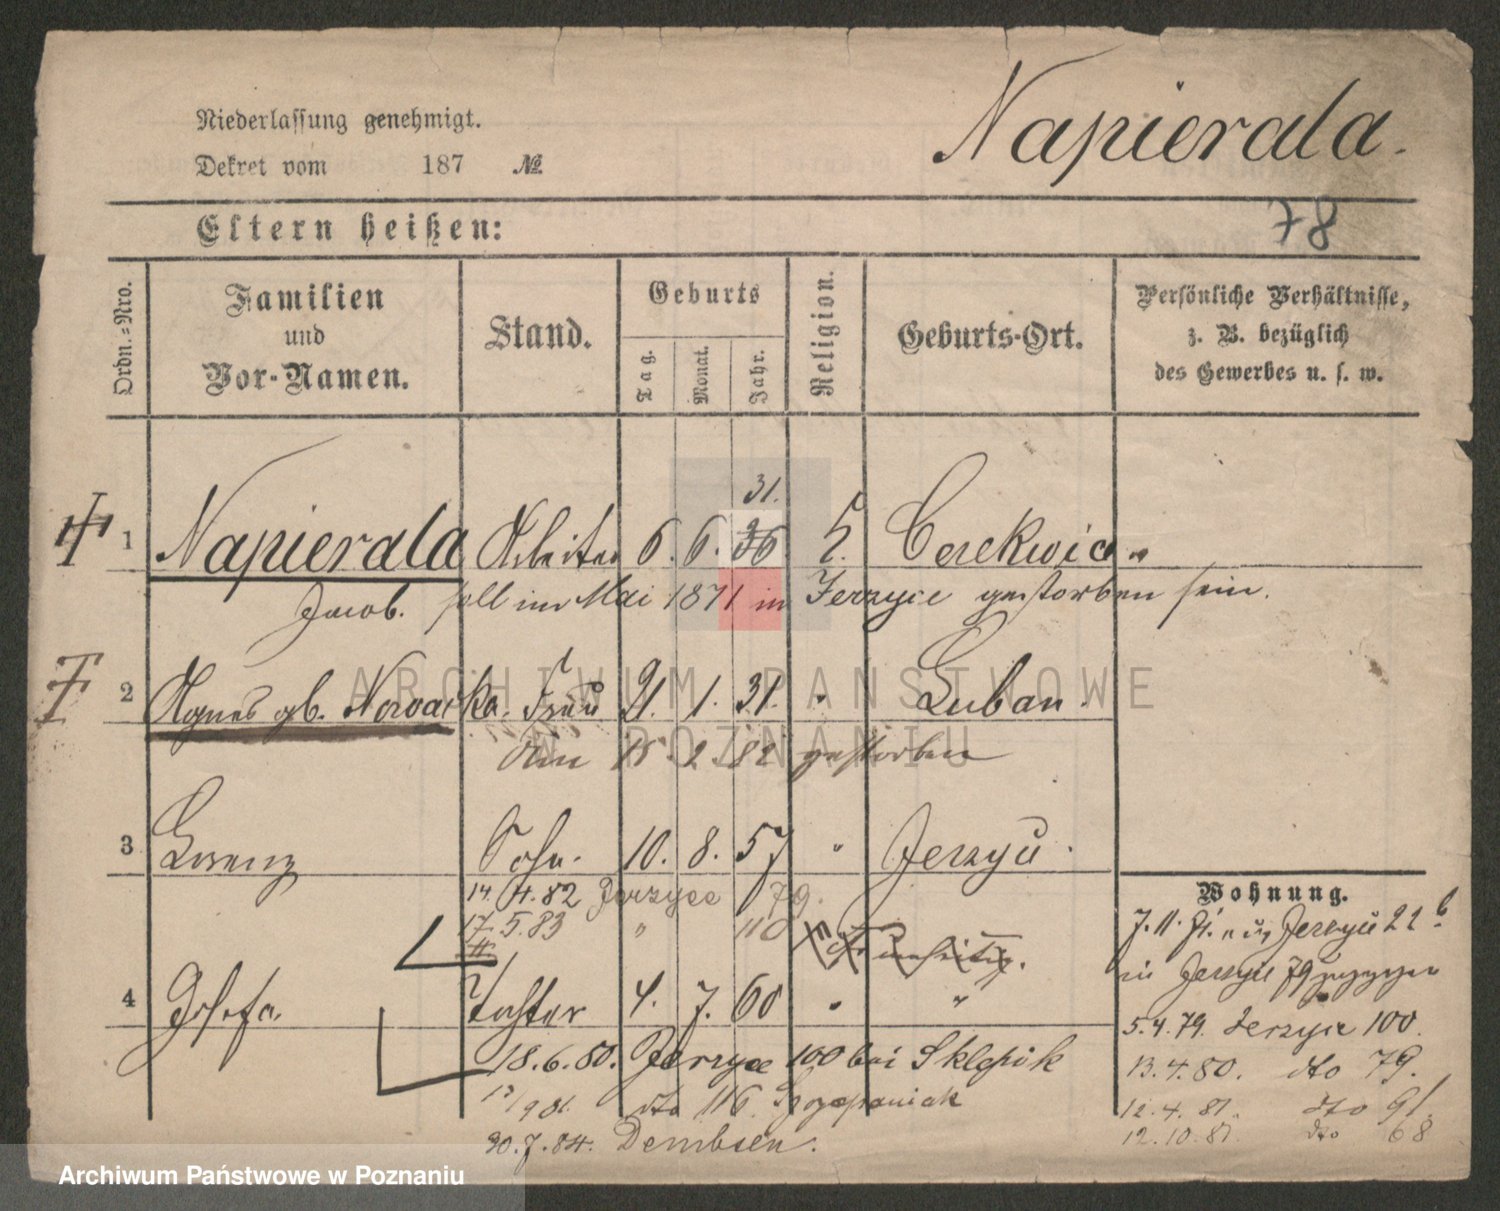 Niederlassung genehmigt.
Dekret vom 187 №
Napierala.
78
Eltern heißen:
Ordn.-Nro.
Familien
und
Vor-Namen.
Stand.
Geburts
Tag.
Monat.
Jahr.
Religion.
Geburts-Ort.
Persönliche Verhältnisse,
z. B. bezüglich
des Gewerbes u. s. w.
31.
1 Napierala Arbeiter 6. 6. 36 Cerekwica
Jacob. soll im Mai 1871 in Jerzyce gestorben sein.
2 Agnes gb. Nowacka. Frau 21. 1. 31. " Luban.
Am 15. 2. 82 gestorben
3 Lorenz Sohn. 10. 8. 57 " Jerzyce.
14. 4. 82 Jerzyce 79.
17. 5. 83 " 110
4 Josefa. Tochter 4. 7. 60 " "
18. 6. 80. Jerzyce 100 bei Sklepik
dto 116 Szczepaniak
30. 7. 84. Dembsen.
Wohnung.
Jerzyce 22
in Jerzyce 79
5. 4. 79. Jerzyce 100.
13. 4. 80. dto 79.
12. 4. 81. dto 91.
12. 10. 81 dto 68
ARCHIWUM PAŃSTWOWE
W POZNANIU
Archiwum Państwowe w Poznaniu